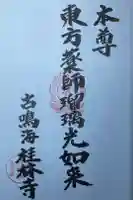 本尊
東方藥師瑠璃光如来
尾鳴海桂林寺